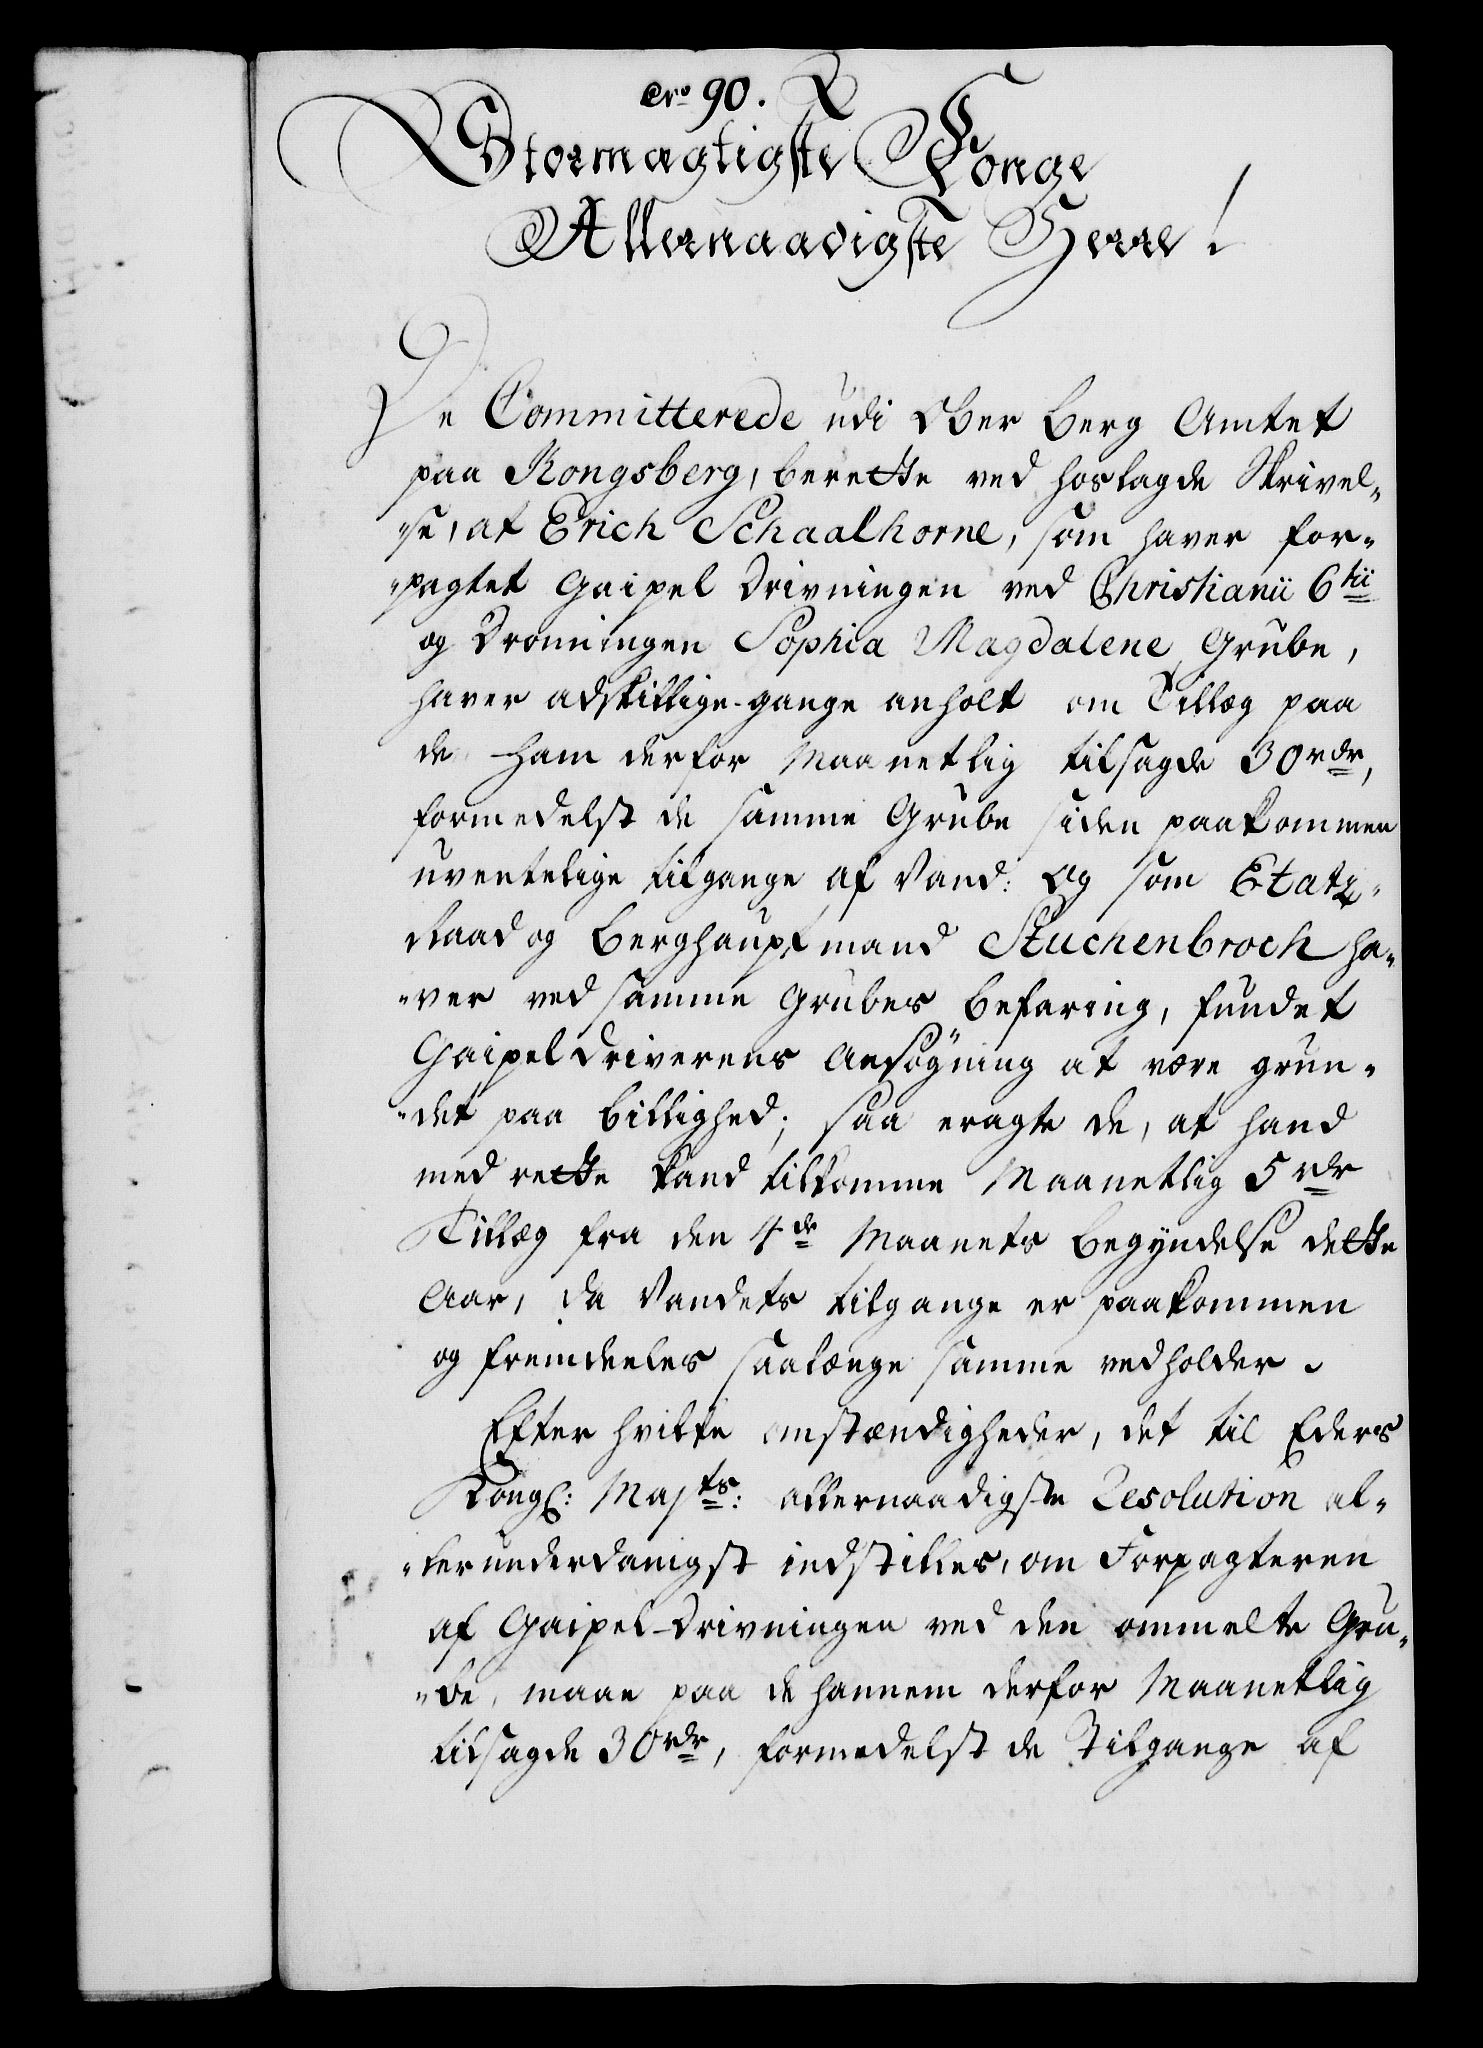 Nro 90.
Stormægtigste Konge
Allernaadigste Herre!
De Committerede udi Ober Berg Amtet
paa Kongsberg, berette ved hoslagde Skrivel-
-se, at Erich Schaalhorne, som haver for-
-pagtet Gaipel Drivningen ved Christianii 6tii
og Dronningen Sophia Magdalene Grube,
haver adskillige gange anholt om Tillæg paa
de ham derfor Maanetlig tilsagde 30 rdr,
formedelst de samme Grube siden paakommen
uventelige tilgange af Vand: Og som Etatz-
Raad og Berghauptmand Stuchenbroch ha-
-ver ved samme Grubes Befaring, fundet
Gaipeldriverens Ansøgning at være grun-
-det paa billighed; saa eragte de, at hand
med rette kand tilkomme Maanetlig 5 rdr
Tillæg fra den 4de Maanets Begyndelse dette
Aar, da Vandets tilgange er paakommen
og fremdeeles saalænge samme vedholder.
Efter hvilke omstændigheder, det til Eders
Kongl: Majts: allernaadigste Resolution al-
-lerunderdanigst indstilles, om Forpagteren
af Gaipel-Drivningen ved den ommelte Gru-
-be, maae paa de hannem derfor Maanetlig
tilsagde 30 rdr, formedelst de Tilgange af